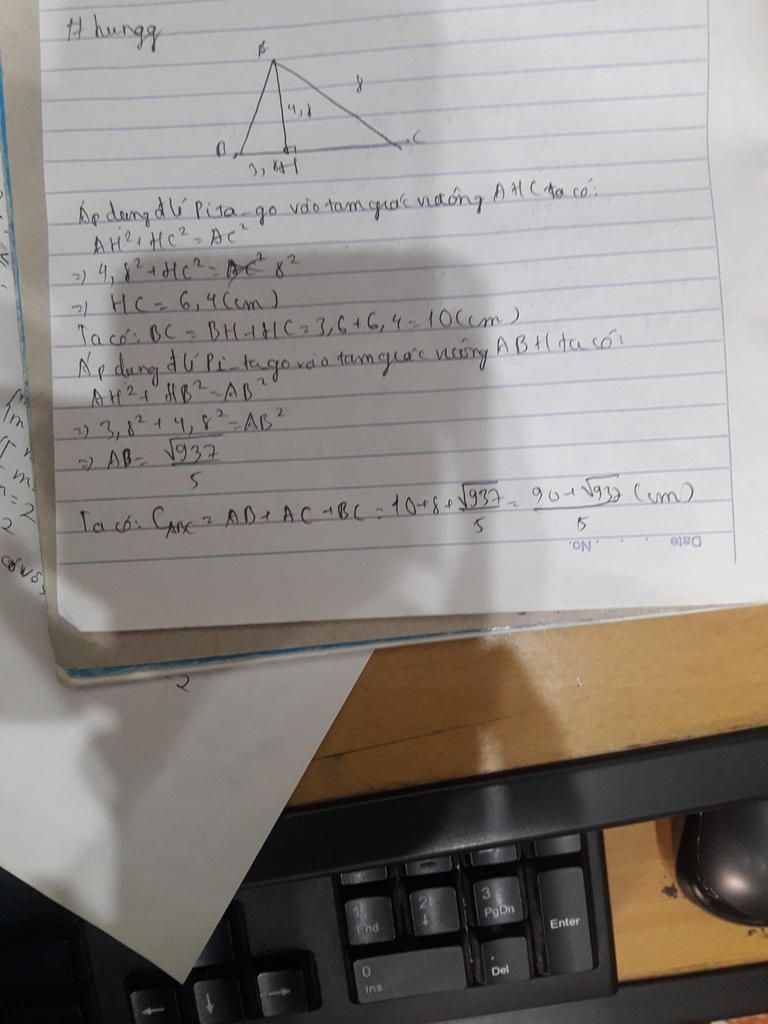 # hungg
A
8
4,8
B
C
3,8 H
Áp dụng đ lí Pita-go vào tam giác vuông AHC ta có:
AH² + HC² = AC²
=> 4,8² + HC² = AC² 8²
=> HC = 6,4 (cm)
Ta có: BC = BH + HC = 3,6 + 6,4 = 10 (cm)
Áp dụng đ lí Pi-tago vào tam giác vuông ABH ta có:
AH² + HB² = AB²
=> 3,8² + 4,8² = AB²
=> AB = √937/5
Ta có: C_ABC = AB + AC + BC = 10 + 8 + √937/5 = 90 + √937/5 (cm)
Date . . . No.
1 End
2 ↓
3 PgDn
Enter
0 Ins
. Del
← ↓ →